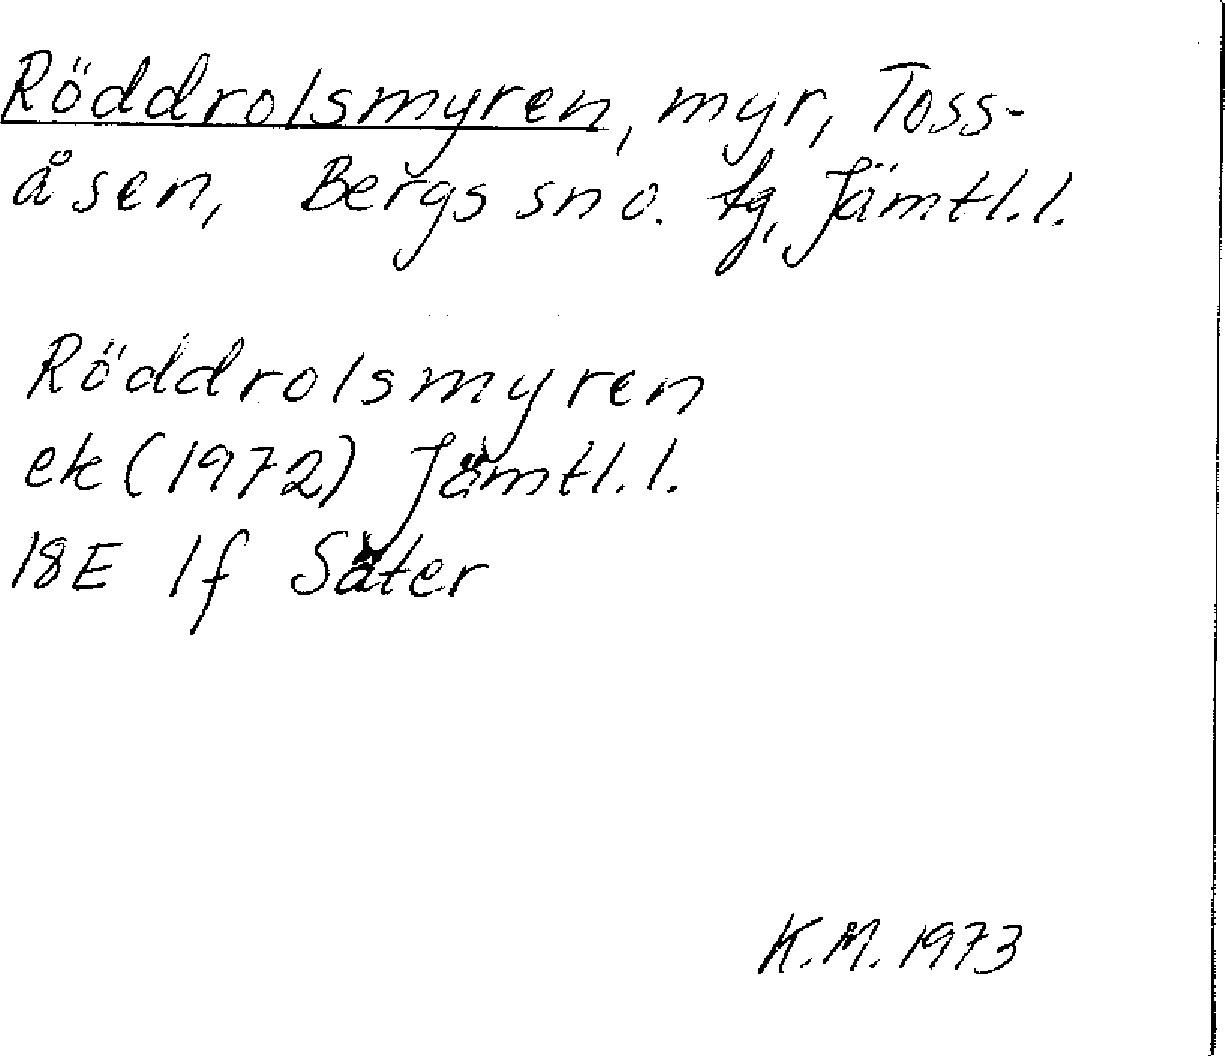 Röddrolsmyren, myr, Toss-
åsen, Bergs sn o. tg, Jämtl. l.
Röddrolsmyren
ek (1972) Jämtl. l.
18E 1f Säter
K.M. 1973